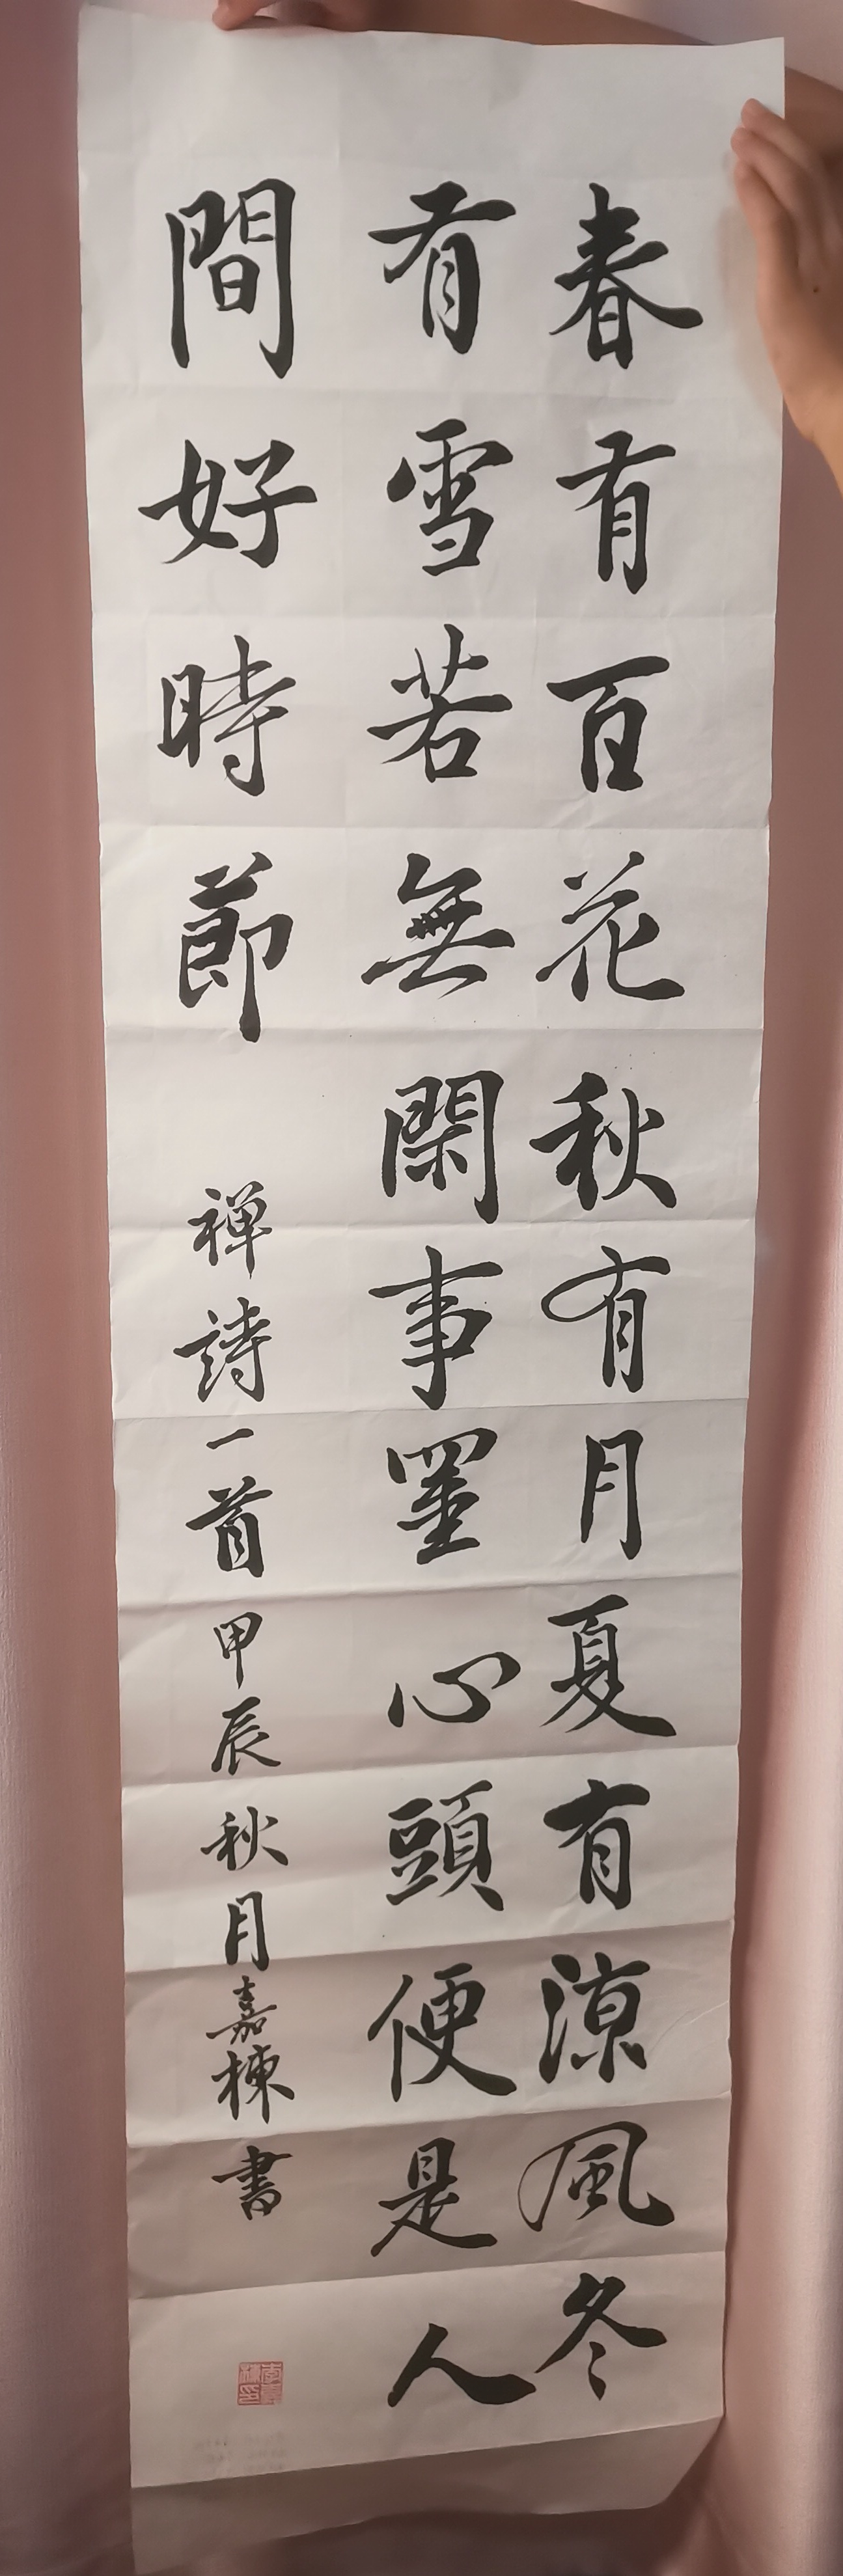 春有百花秋有月夏有涼風冬
有雪若無閑事罣心頭便是人
間好時節
禅詩一首甲辰秋月嘉棟書